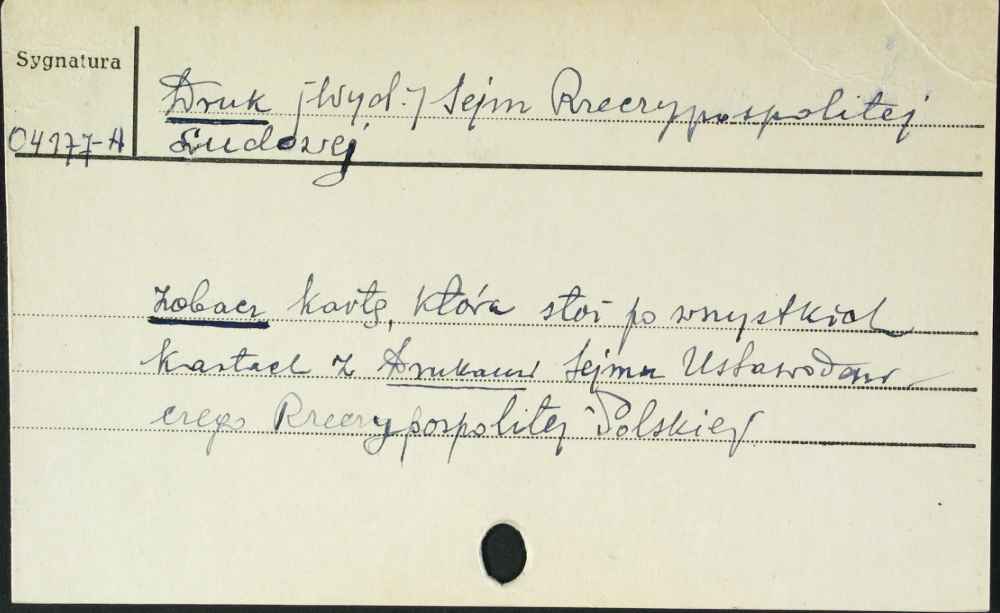 Sygnatura
Druk [Wyd.] Sejm Rzeczypospolitej
04177-A Ludowej
Zobacz kartę, która stoi po wszystkich
kartach z Drukami Sejmu Ustawodaw-
czego Rzeczypospolitej Polskiej